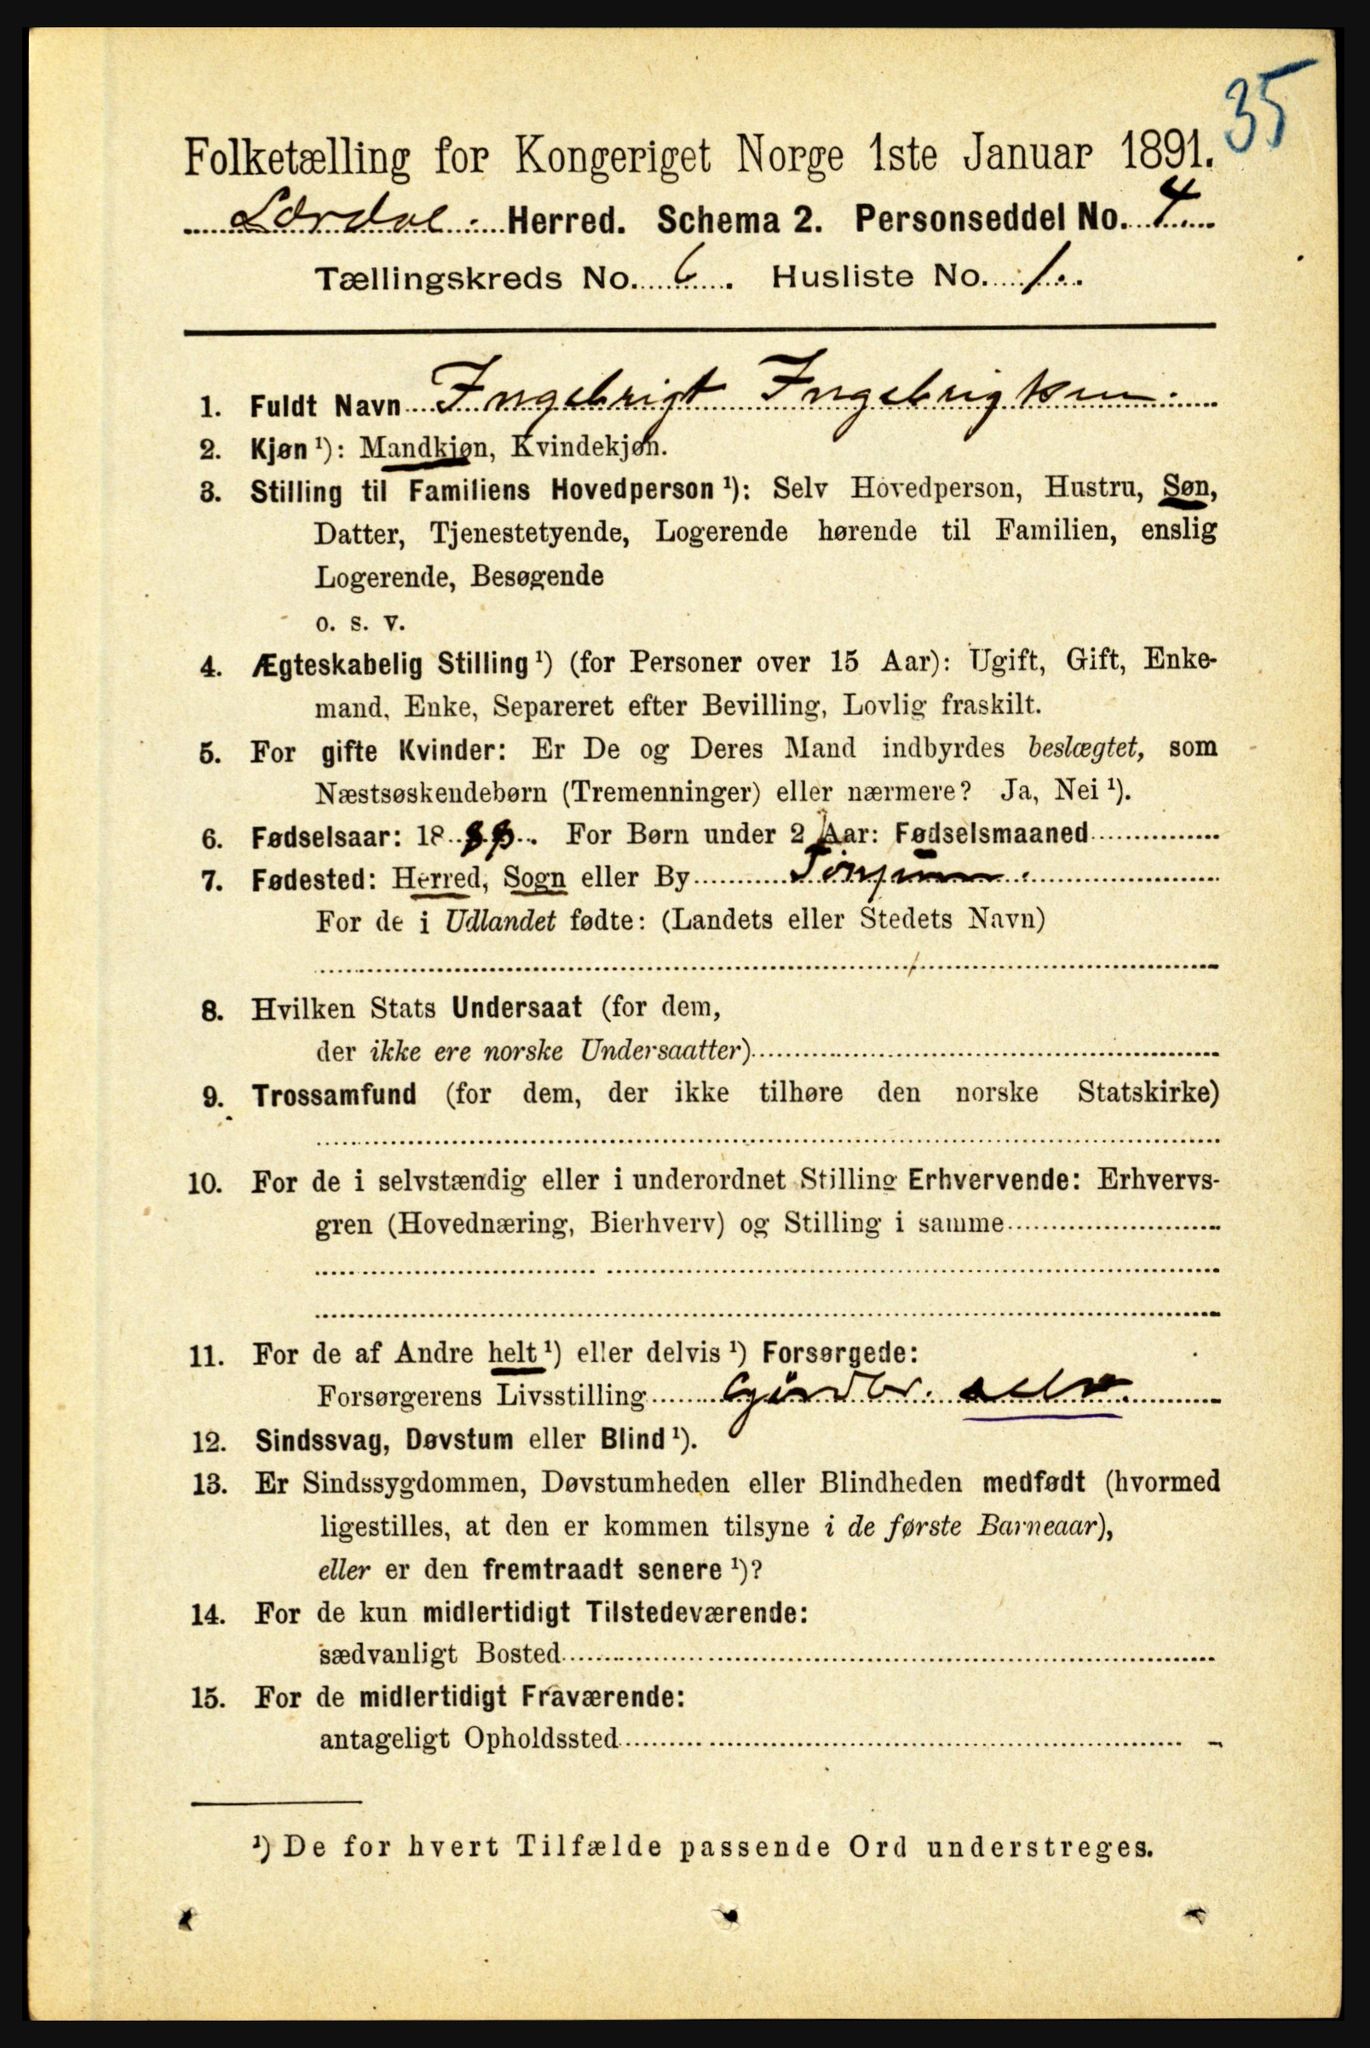 35
Folketælling for Kongeriget Norge 1ste Januar 1891.
Lærdal. Herred. Schema 2. Personseddel No. 4
Tællingskreds No. 6. Husliste No. 1.
1. Fuldt Navn Ingebrigt Ingebrigtsen.
2. Kjøn ¹): Mandkjøn, Kvindekjøn.
3. Stilling til Familiens Hovedperson ¹): Selv Hovedperson, Hustru, Søn,
Datter, Tjenestetyende, Logerende hørende til Familien, enslig
Logerende, Besøgende
o. s. v.
4. Ægteskabelig Stilling ¹) (for Personer over 15 Aar): Ugift, Gift, Enke-
mand, Enke, Separeret efter Bevilling, Lovlig fraskilt.
5. For gifte Kvinder: Er De og Deres Mand indbyrdes beslægtet, som
Næstsøskendebørn (Tremenninger) eller nærmere? Ja, Nei ¹).
6. Fødselsaar: 18 For Børn under 2 Aar: Fødselsmaaned
7. Fødested: Herred, Sogn eller By Tønjum.
For de i Udlandet fødte: (Landets eller Stedets Navn)
8. Hvilken Stats Undersaat (for dem,
der ikke ere norske Undersaatter)
9. Trossamfund (for dem, der ikke tilhøre den norske Statskirke)
10. For de i selvstændig eller i underordnet Stilling Erhvervende: Erhvervs-
gren (Hovednæring, Bierhverv) og Stilling i samme
11. For de af Andre helt ¹) eller delvis ¹) Forsørgede:
Forsørgerens Livsstilling Gårdbr. selv.
12. Sindssvag, Døvstum eller Blind ¹).
13. Er Sindssygdommen, Døvstumheden eller Blindheden medfødt (hvormed
ligestilles, at den er kommen tilsyne i de første Barneaar),
eller er den fremtraadt senere ¹)?
14. For de kun midlertidigt Tilstedeværende:
sædvanligt Bosted
15. For de midlertidigt Fraværende:
antageligt Opholdssted
¹) De for hvert Tilfælde passende Ord understreges.